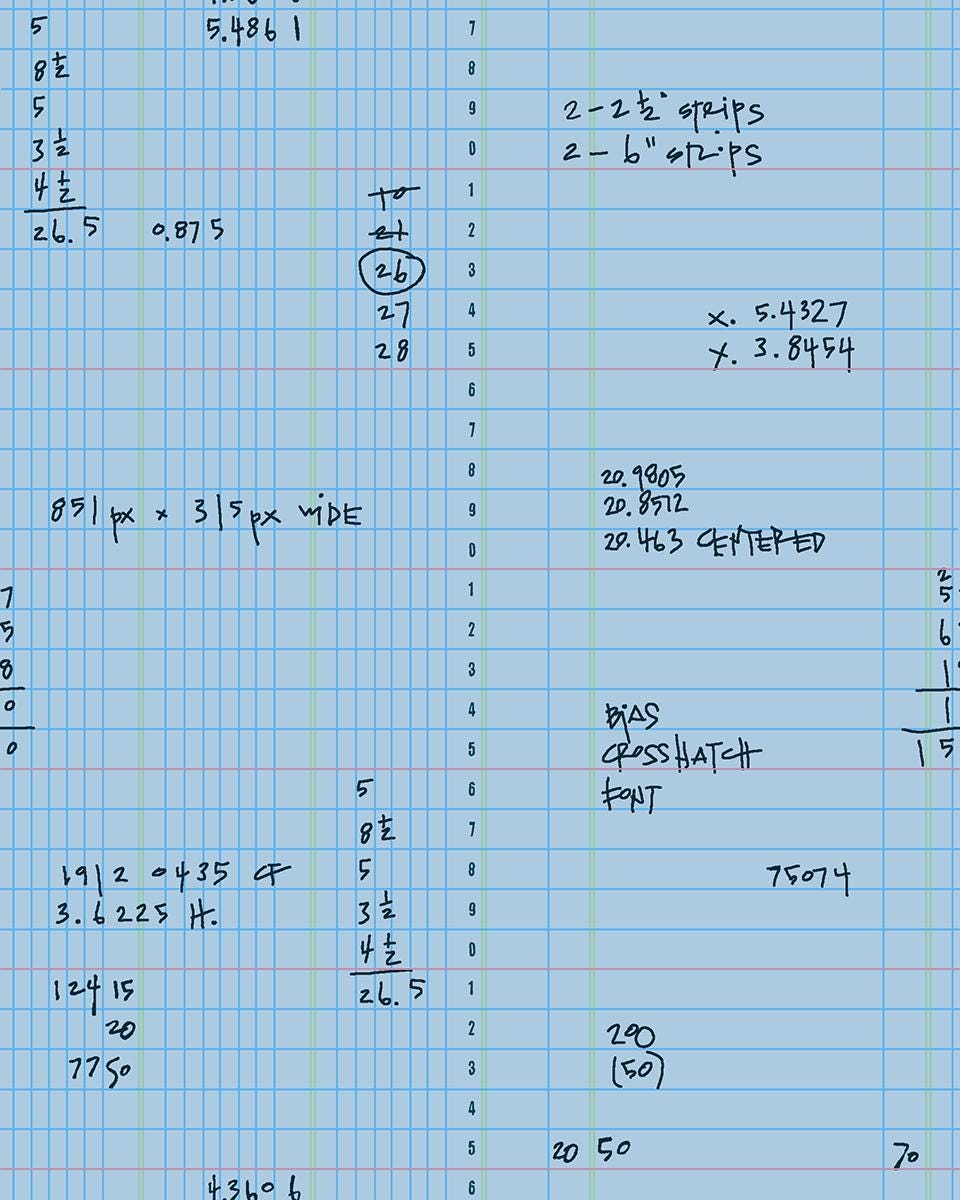 5
8 1/2
5
3 1/2
4 1/2
26.5 0.875
5.4861
26
27
28
851 px x 315 px WIDE
7
5
8
0
0
5
8 1/2
5
3 1/2
4 1/2
26.5
1912 0435 CF
3.6225 H.
124 15
20
7750
4.3606
7
8
9
0
1
2
3
4
5
6
7
8
9
0
1
2
3
4
5
6
7
8
9
0
1
2
3
4
5
6
2 - 2 1/2" STRIPS
2 - 6" STRIPS
X. 5.4327
Y. 3.8454
20.9805
20.8512
20.463 CENTERED
BIAS
CROSSHATCH
FONT
75074
200
(50)
20 50 70
2
5
6
1
1
15